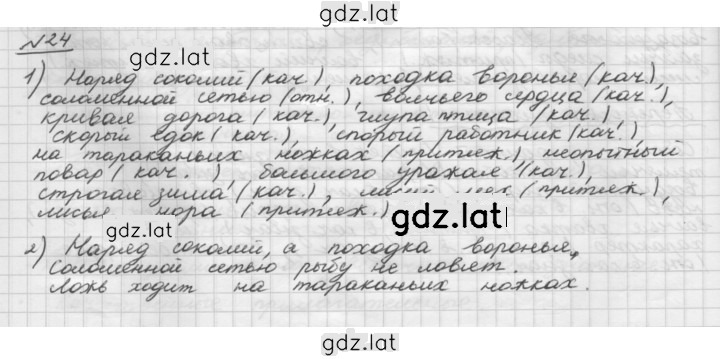 gdz.lat
№24
gdz.lat
1) Наряд соколий (кач.), походка воронья (кач.),
соломенной сетью (отн.), волчьего сердца (кач.),
кривая дорога (кач.), глупа птица (кач.),
скорый едок (кач.), спорый работник (кач.)
на тараканьих ножках (притяж.) неопытный
повар (кач.), большого урожая (кач.),
строгая зима (кач.), мех (притяж.),
лисья нора (притяж.)
gdz.lat
gdz.lat
2) Наряд соколий, а походка воронья,
Соломенной сетью рыбу не ловят.
Ложь ходит на тараканьих ножках.
gdz.lat